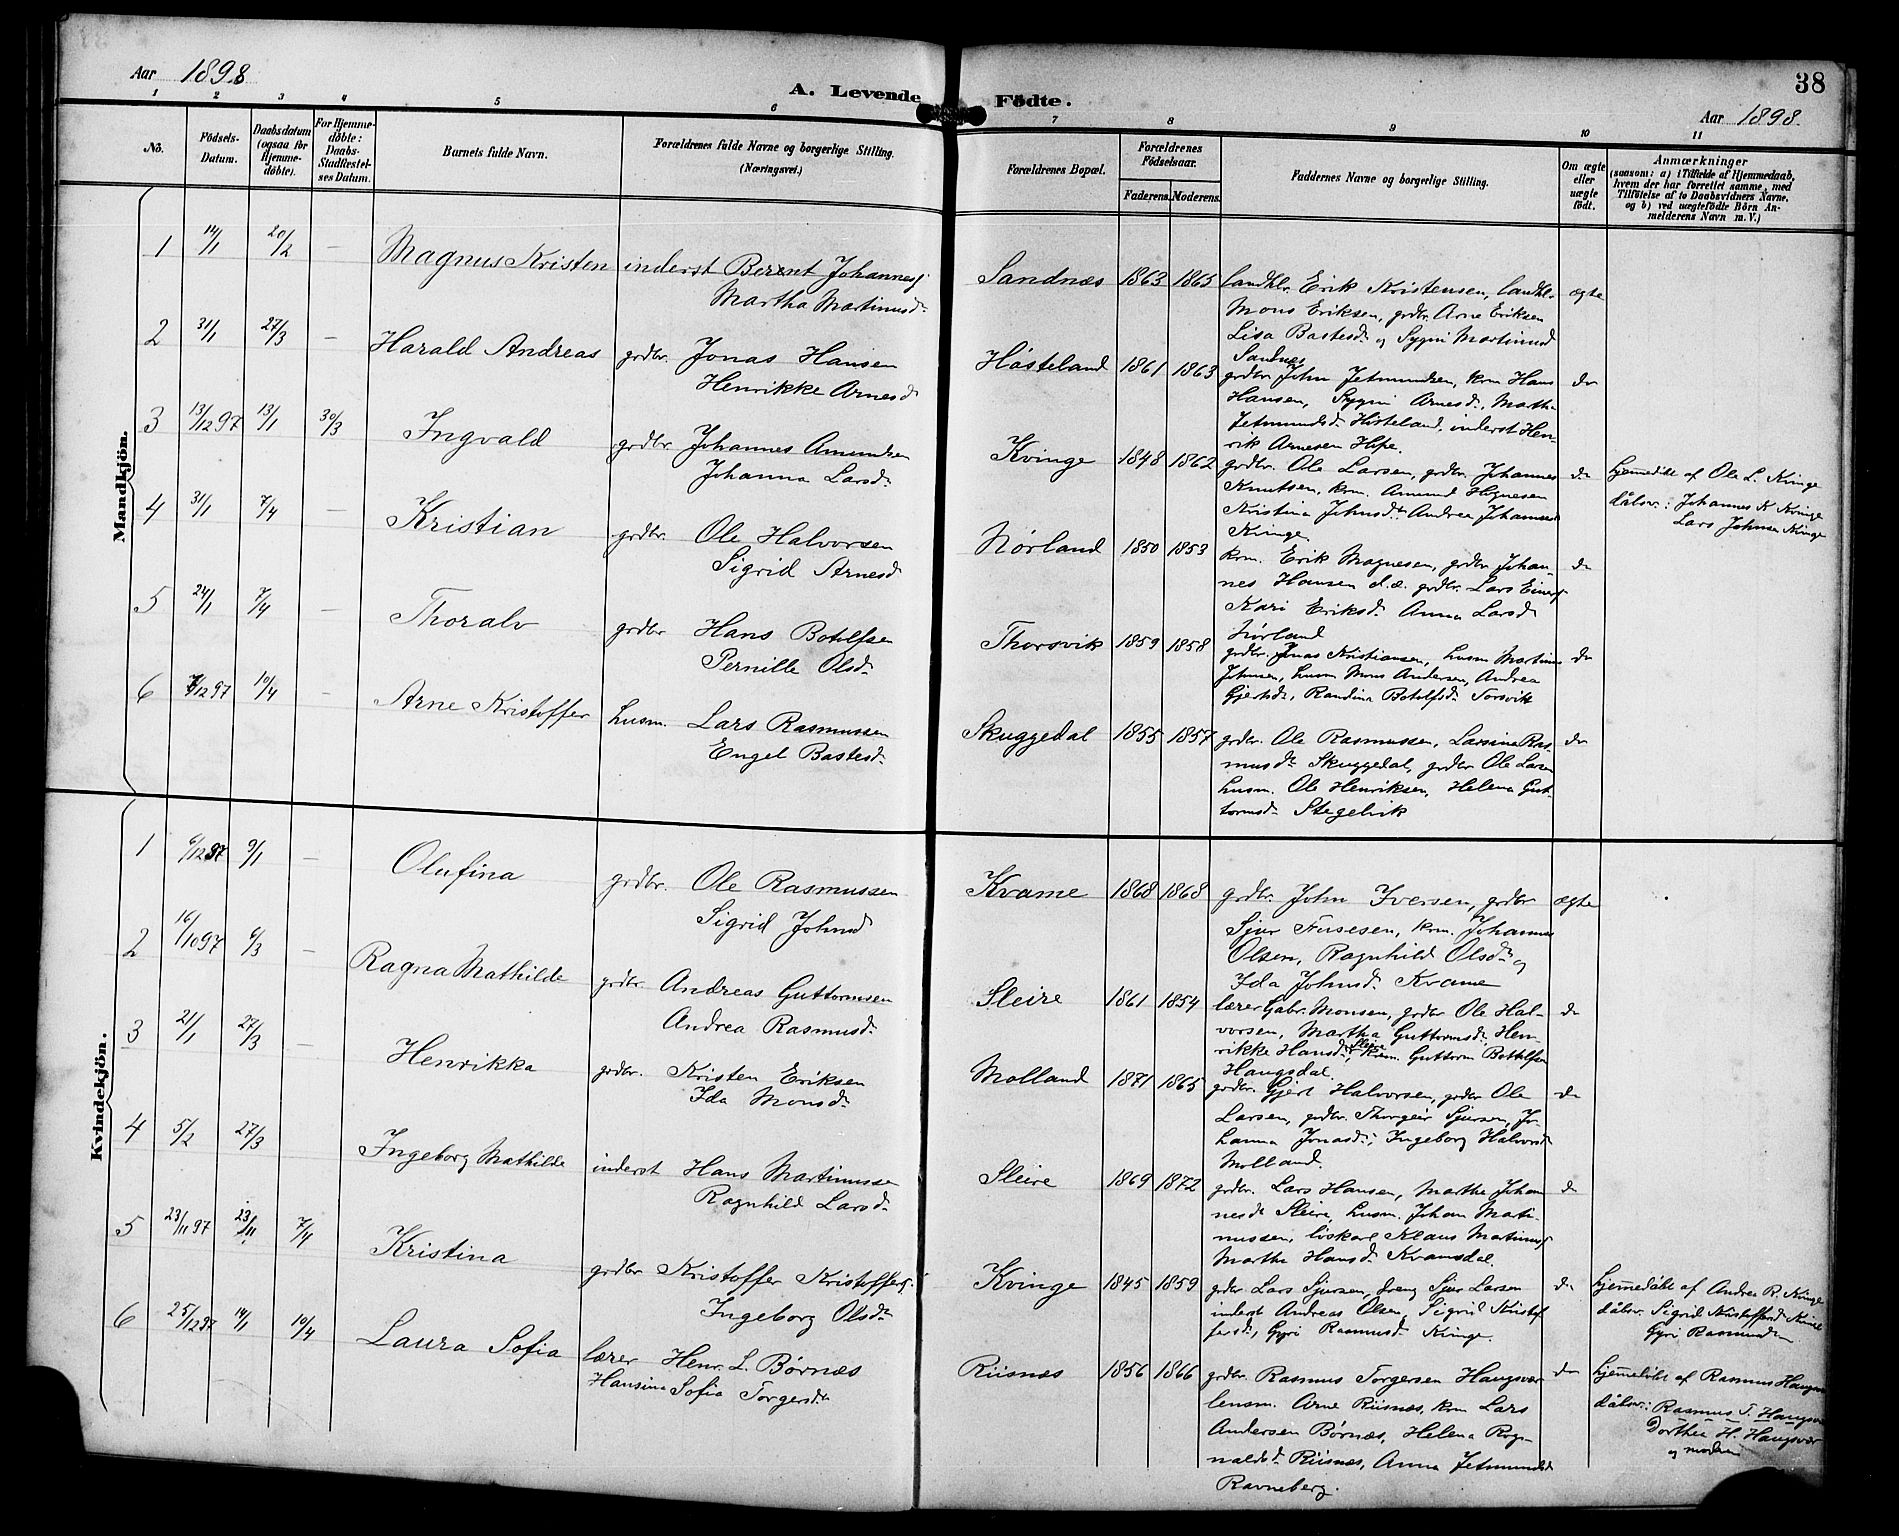 Aar 1898
A. Levende Födte.
Aar 1898.
38
1 2 3 4 5 6 7 8 9 10 11
No.
Födsels-Datum.
Daabsdatum (ogsaa for Hjemmedöbte).
For Hjemmedöbte: Daabs-Stadfæstelses Datum.
Barnets fulde Navn.
Forældrenes fulde Navne og borgerlige Stilling. (Næringsvei.)
Forældrenes Bopæl.
Forældrenes Födselsaar.
Faderens. Moderens.
Faddernes Navne og borgerlige Stilling.
Om ægte eller uægte födt.
Anmærkninger
(saasom: a) i Tilfælde af Hjemmedaab,
hvem der har forrettet samme, med
Tilföielse af to Daabsvidners Navne.
og b) ved uægtefödte Börn An-
melderens Navn m. V.)
Mandkjön.
1 14/1 20/2 — Magnus Kristen inderst Berent Johanness
Martha Martinusd.
Sandnæs 1863 1865 landhl. Erik Kristensen, landhl.
Mons Eriksen, grdbr. Arne Eriksen
Lisa Bastesd. og Sygni Martinusd
Sandnes
ægte
2 31/1 27/3 — Harald Andreas grdbr. Jonas Hansen
Henrikke Arnesd
Hósteland 1861 1863 grdbr. John Jetmundsen, krm Hans
Hansen, Sygni Arnesd., Martha
Jetmundsd. Hósteland, inderst Hen-
rik Arnesen Hope.
do
3 13/12 97 13/1 30/3 Ingvald grdbr. Johannes Amundsen
Johanna Larsd.
Kvinge 1848 1862 grdbr. Ole Larsen, grdbr. Johannes
Knutsen, krm. Amund Hognesen
Kristina Johnsd. Andrea Johannesd
Kvinge.
do
hjemedöbt af Ole L. Kvinge
dåbsv.: Johannes K Kvinge
Lars Johnsen Kvinge
4 31/1 7/4 — Kristian grdbr. Ole Halvorsen
Sigrid Arnesd
Nórland 1850 1853 krm. Erik Magnesen, grdbr. Johan-
nes Hansen d.æ. grdbr. Lars Einars
Kari Eriksd. Anna Larsd
Nórland
do
5 24/1 7/4 — Thoralv grdbr Hans Botolfsen
Pernille Olsd.
Thorsvik 1859 1858 grdbr. Jonas Kristiansen, husm Martinus
Johnsen, husm Mons Andersen, Andrea
Gjertsd., Randina Botolfsd. Torsvik
do
6 7/12 97 10/4 — Arne Kristoffer husm. Lars Rasmussen
Engel Bastesd.
Skuggedal 1855 1857 grdbr. Ole Rasmussen, Larsine Ras-
musd. Skuggedal, grdbr Ole Larsen
husm. Ole Henriksen, Helena Gut-
tormsd. Stegelvik
do
Kvindekjön.
1 6/12 97 9/1 — Olufina grdbr. Ole Rasmussen
Sigrid Johnsd
Kvame 1868 1868 grdbr. John Iversen, grdbr
Sjur Fursesen, krm. Johannes
Olsen, Ragnhild Olsd. og
Ida Johnsd. Kvame
ægte
2 16/10 97 6/3 — Ragna Mathilde grdbr. Andreas Guttormsen
Andrea Rasmusd.
Sleire 1861 1854 lærer Gabr. Monsen, grdbr Ole Hal-
vorsen, Martha Guttormsd., Hen-
rikke Hansd. Sleire, krm. Guttorm Bottolfsen
Haugsdal.
do
3 21/1 27/3 — Henrikka grdbr. Kristen Eriksen
Ida Monsd.
Molland 1871 1865 grdbr. Gjert Halvorsen, grdbr Ole
Larsen, grdbr. Thorgeir Sjursen, Jo-
hanna Jonasd., Ingeborg Halvorsd
Molland.
do
4 5/2 27/3 Ingeborg Mathilde inderst Hans Martinussen
Ragnhild Larsd.
Sleire 1869 1872 grdbr. Lars Hansen, Marthe Johan
nesd. Sleire, husm. Johan Marti-
nussen, löskarl Klaus Martinuss
Marthe Hansd. Kvamsdal.
do
5 23/11 97 23/11 7/4 Kristina grdbr Kristoffer Kristoffers.
Ingeborg Olsd.
Kvinge 1845 1859 grdbr Lars Sjursen, dreng Sjur Larsen
inderst Andreas Olsen, Sigrid Kristof
fersd., Gyri Rasmusd. Kvinge.
do
hjemedöbt af Andrea R. Kvinge
dåbsv. Sigrid Kristoffersd Kvinge
Gyri Rasmusd
6 25/12 97 14/1 10/4 Laura Sofia lærer Henr. L. Børnæs
Hansine Sofia Torgersd.
Riisnæs 1856 1866 grdbr. Rasmus Torgersen Haugsvær
lensm. Arne Riisnæs, krm Lars
Andersen Børnæs, Helena Rog-
naldsd. Riisnæs, Anna Jetmundsd.
Ravneberg.
do
hjemedöbt af Rasmus Haugsvær
dåbsv.: Rasmus T. Haugsvær
Dorthea H. Haugsvær
og moderen